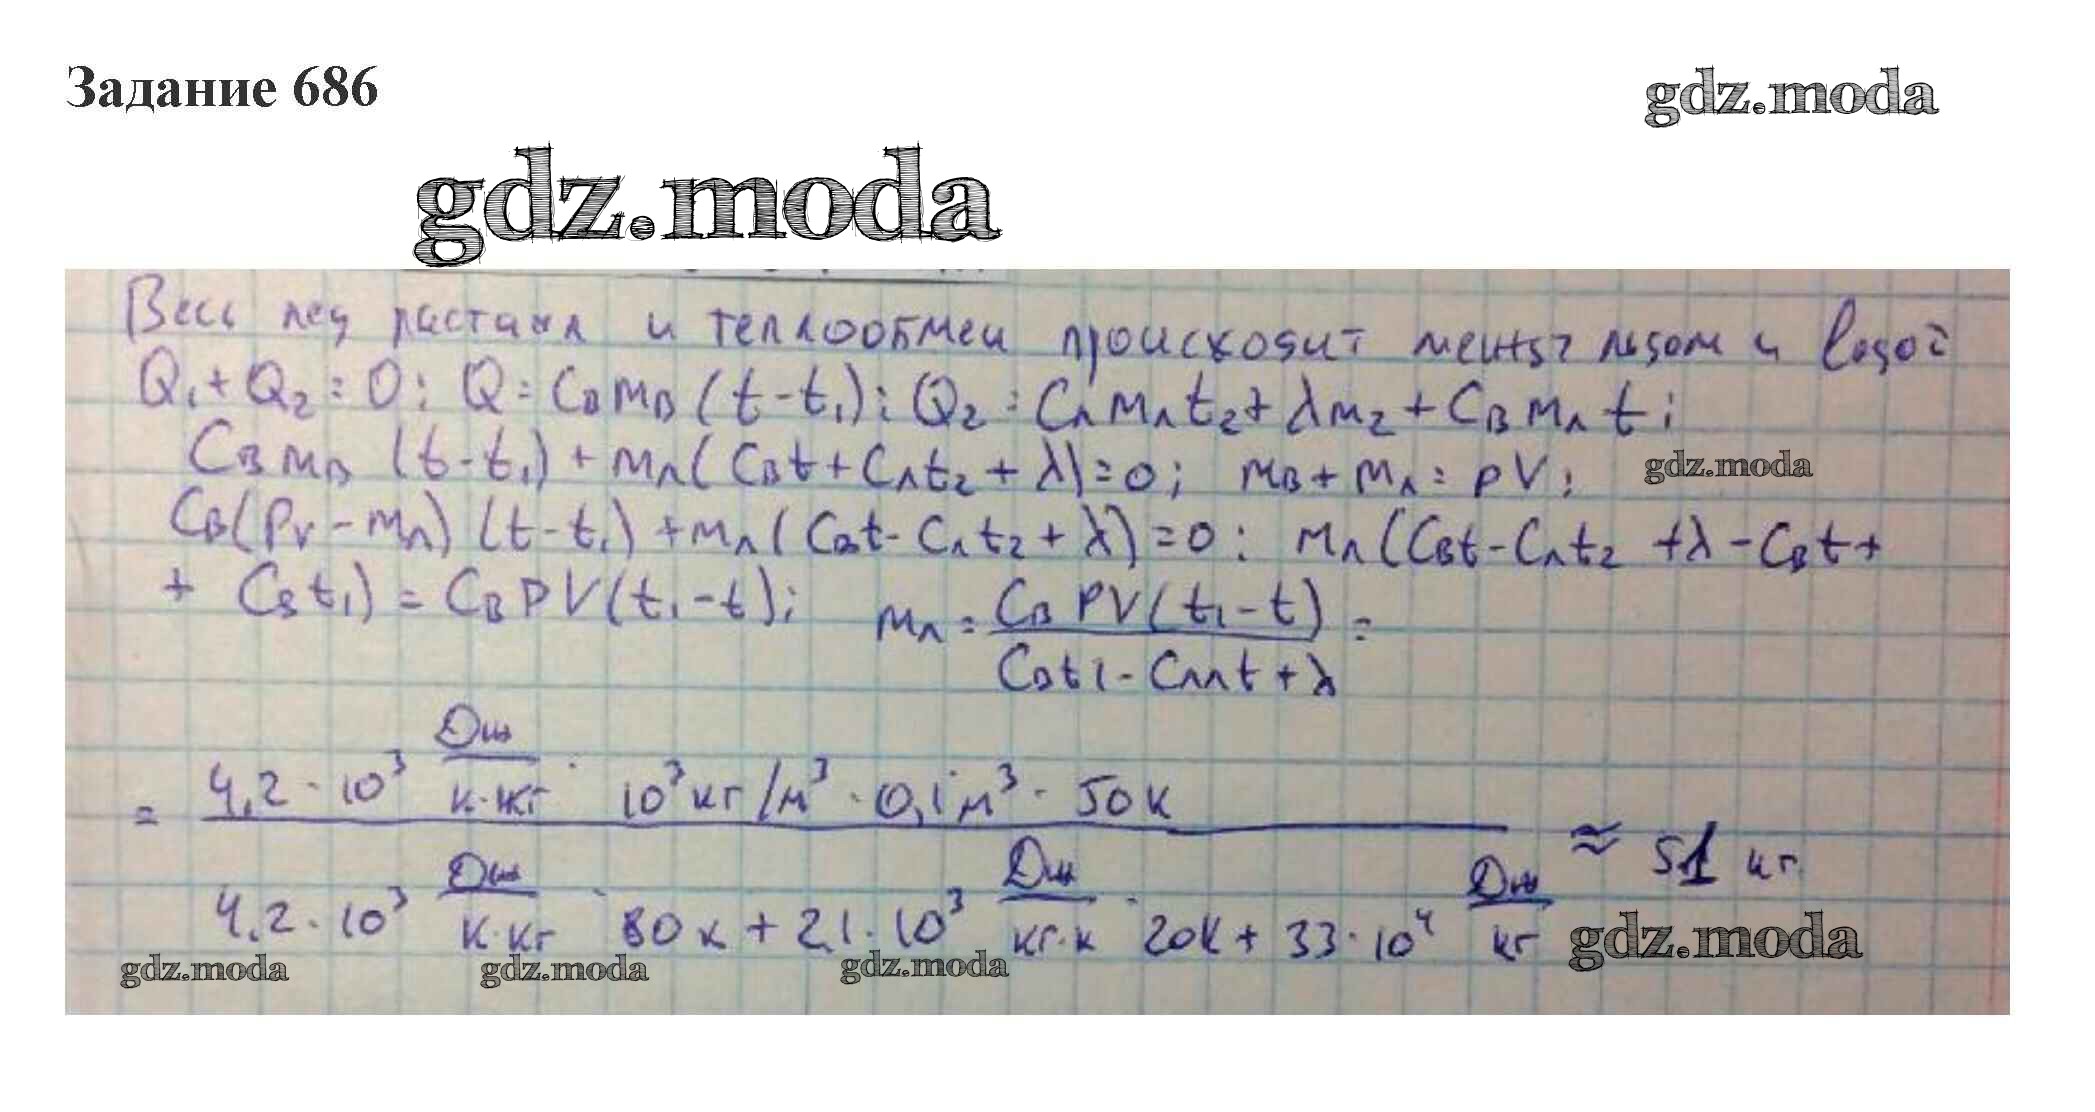 Задание 686
gdz.moda
gdz.moda
Весь лед растаял и теплообмен происходит между льдом и водой
Q₁ + Q₂ = 0; Q = CвMв(t - t₁); Q₂ = CлMлt₂ + λM₂ + CвMлt;
CвMв(t - t₁) + Mл(Cвt + Cлt₂ + λ) = 0; Mв + Mл = ρV;
gdz.moda
Cв(ρV - Mл)(t - t₁) + Mл(Cвt - Cлt₂ + λ) = 0; Mл(Cвt - Cлt₂ + λ - Cвt +
+ Cвt₁) = CвρV(t₁ - t); Mл = CвρV(t₁ - t) / Cвt1 - Cллt + λ =
= 4,2 · 10³ Дж/К·кг · 10³ кг/м³ · 0,1 м³ · 50К
4,2 · 10³ Дж/К·кг · 80К + 2,1 · 10³ Дж/кг·К · 20К + 33 · 10⁴ Дж/кг ≈ 51 кг
gdz.moda
gdz.moda gdz.moda gdz.moda